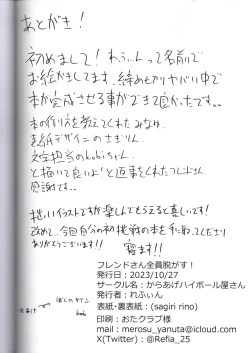 あとがき！
初めまして！れふぃんって名前で
お絵かきしてます。締め切りヤバい中で
本が完成させる事ができて良かったです。。
本の作り方を教えてくれたみなゆ、
表紙デザインのさぎりん、
文字担当のkobiちゃん、
と描いて良いよ！と返事をくれたフレンドさん、
感謝です。。
拙いイラストですが楽しんでもらえると喜しいです！
改めて、今回自分の初挑戦の本を手に取ってくださり
ありがとうございます!!
寝ます!!
フレンドさん全員脱がす！
発行日：2023/10/27
サークル名：からあげハイボール屋さん
発行者：れふいん
表紙・裏表紙：(sagiri rino)
印刷：おたクラブ様
mail：merosu_yanuta@icloud.com
X(Twitter)：@Refia_25